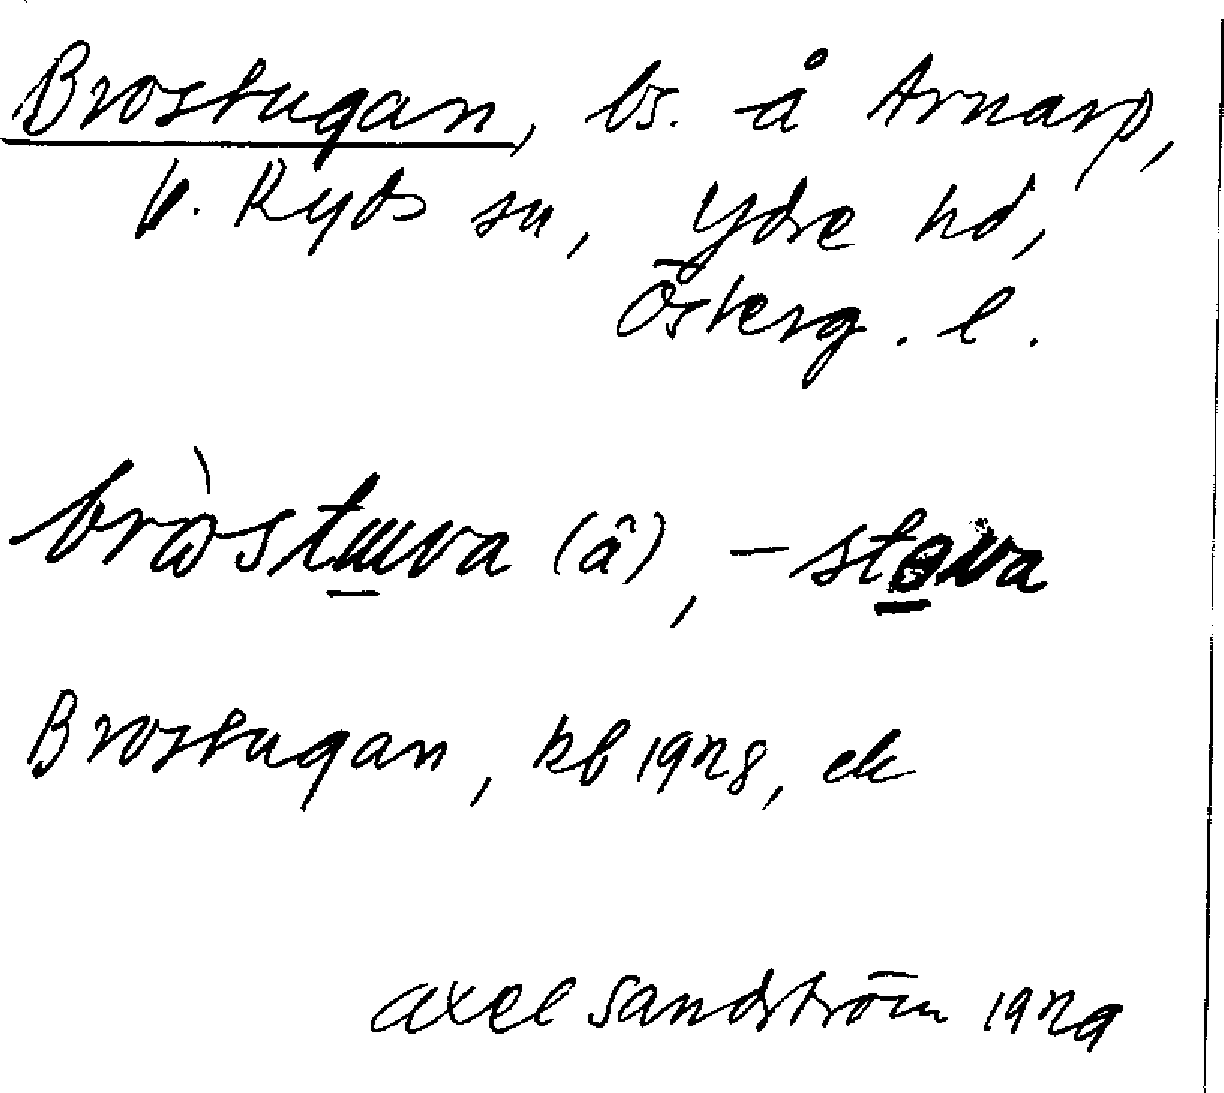 Brostugan, bs. å Arnarp,
V. Ryds sn, Ydre hd,
Österg. l.
bròstuva (â), -stova
Brostugan, kb 1928, ek
Axel Sandström 1929